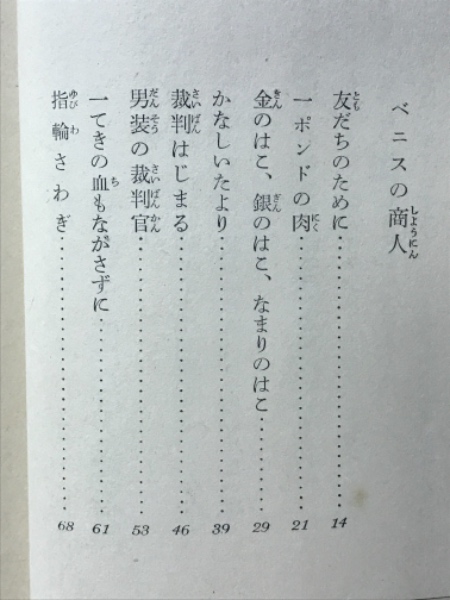 ベニスの商人
友だちのために 14
一ポンドの肉 21
金のはこ、銀のはこ、なまりのはこ 29
かなしいたより 39
裁判はじまる 46
男装の裁判官 53
一てきの血もながさずに 61
指輪さわぎ 68